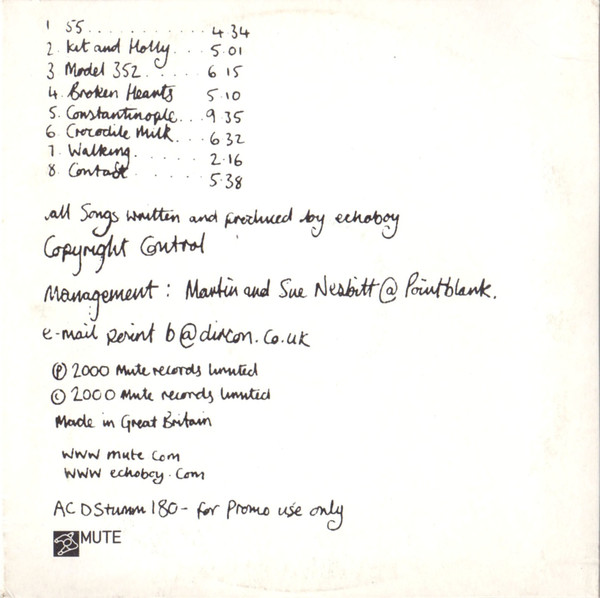 1 55........... 4.34
2. Kit and Holly... 5.01
3 Model 352...... 6 15
4. Broken Hearts 5.10
5. Constantinople... 9.35
6. Crocodile Milk... 6 32
7. Walking...... 2.16
8. Contact..... 5.38
all Songs written and produced by echoboy
Copyright Control
Management : Martin and Sue Nesbitt @ Pointblank.
e-mail point b@dircon.co.uk
℗ 2000 Mute records limited
© 2000 Mute records limited
Made in Great Britain
WWW mute Com
WWW echoboy.Com
ACDStumm 180 - for Promo use only
MUTE